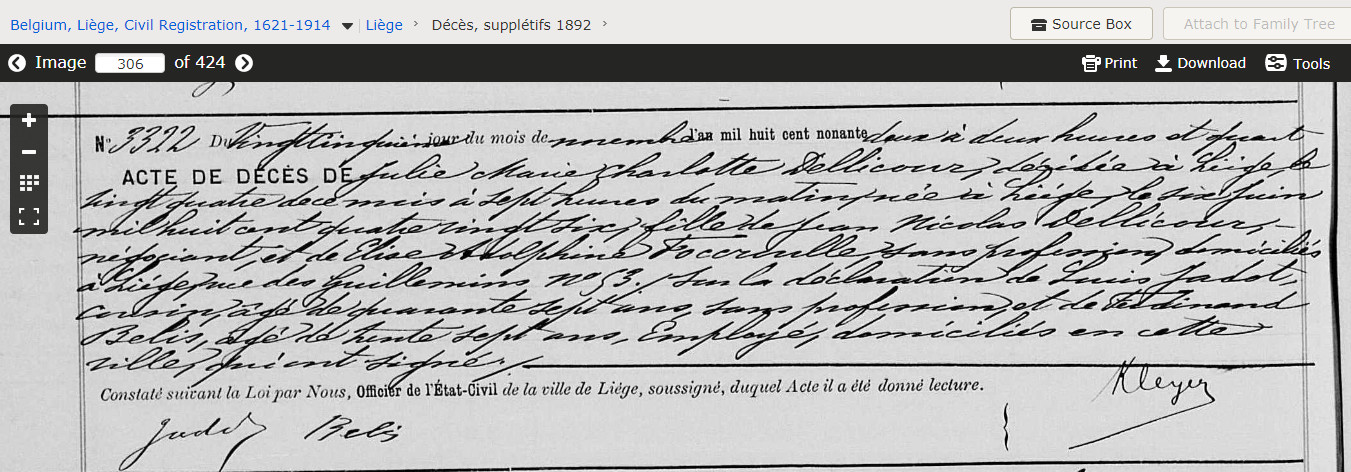 Belgium, Liège, Civil Registration, 1621-1914 Liège Décès, supplétifs 1892 Source Box Attach to Family Tree
Image 306 of 424 Print Download Tools
N° 3322 Du Vingtcinquième jour du mois de novembre l'an mil huit cent nonante deux à deux heures et quart
ACTE DE DÉCÈS DE Julie Marie Charlotte Dellicour, décédée à Liége, le
vingt quatre de ce mois à sept heures du matin, née à Liége, le six juin
mil huit cent quatre vingt six, fille de Jean Nicolas Dellicour,
négociant, et de Elise Adolphine Foccroulle, sans profession, domiciliés
à Liége, rue des Guillemins, N° 53. / Sur la déclaration de Louis Jadot,
cousin, âgé de quarante sept ans, sans profession, et de Ferdinand
Belis, âgé de trente sept ans, Employé, domiciliés en cette
ville, qui ont signé. /
Constaté suivant la Loi par Nous, Officier de l'État-Civil de la ville de Liége, soussigné, duquel Acte il a été donné lecture.
Kleyer
Jadot Belis